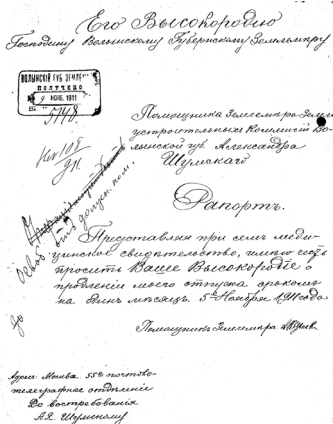 Его Высокородію
Господину Волынскому Губернскому Землемѣру
ВОЛЫНСКІЙ ГУБ. ЗЕМЛЕМ
ПОЛУЧЕНО
9 НОЯБ. 1911
5148.
Помощника Землемѣра Земле
устроительныхъ Коммисій Во-
лынской губ. Александра
Шумскаго
Рапортъ.
Представляя при семъ меди-
цинское свидѣтельство, имѣю честь
просить Ваше Высокородіе о
продленіи моего отпуска срокомъ
на одинъ мѣсяцъ. 5 Ноября 1911 года
Помощникъ Землемѣра
Адресъ: Москва. 55ое почтово-
телеграфное отдѣленіе
До востребованія
А.Я. Шумскому